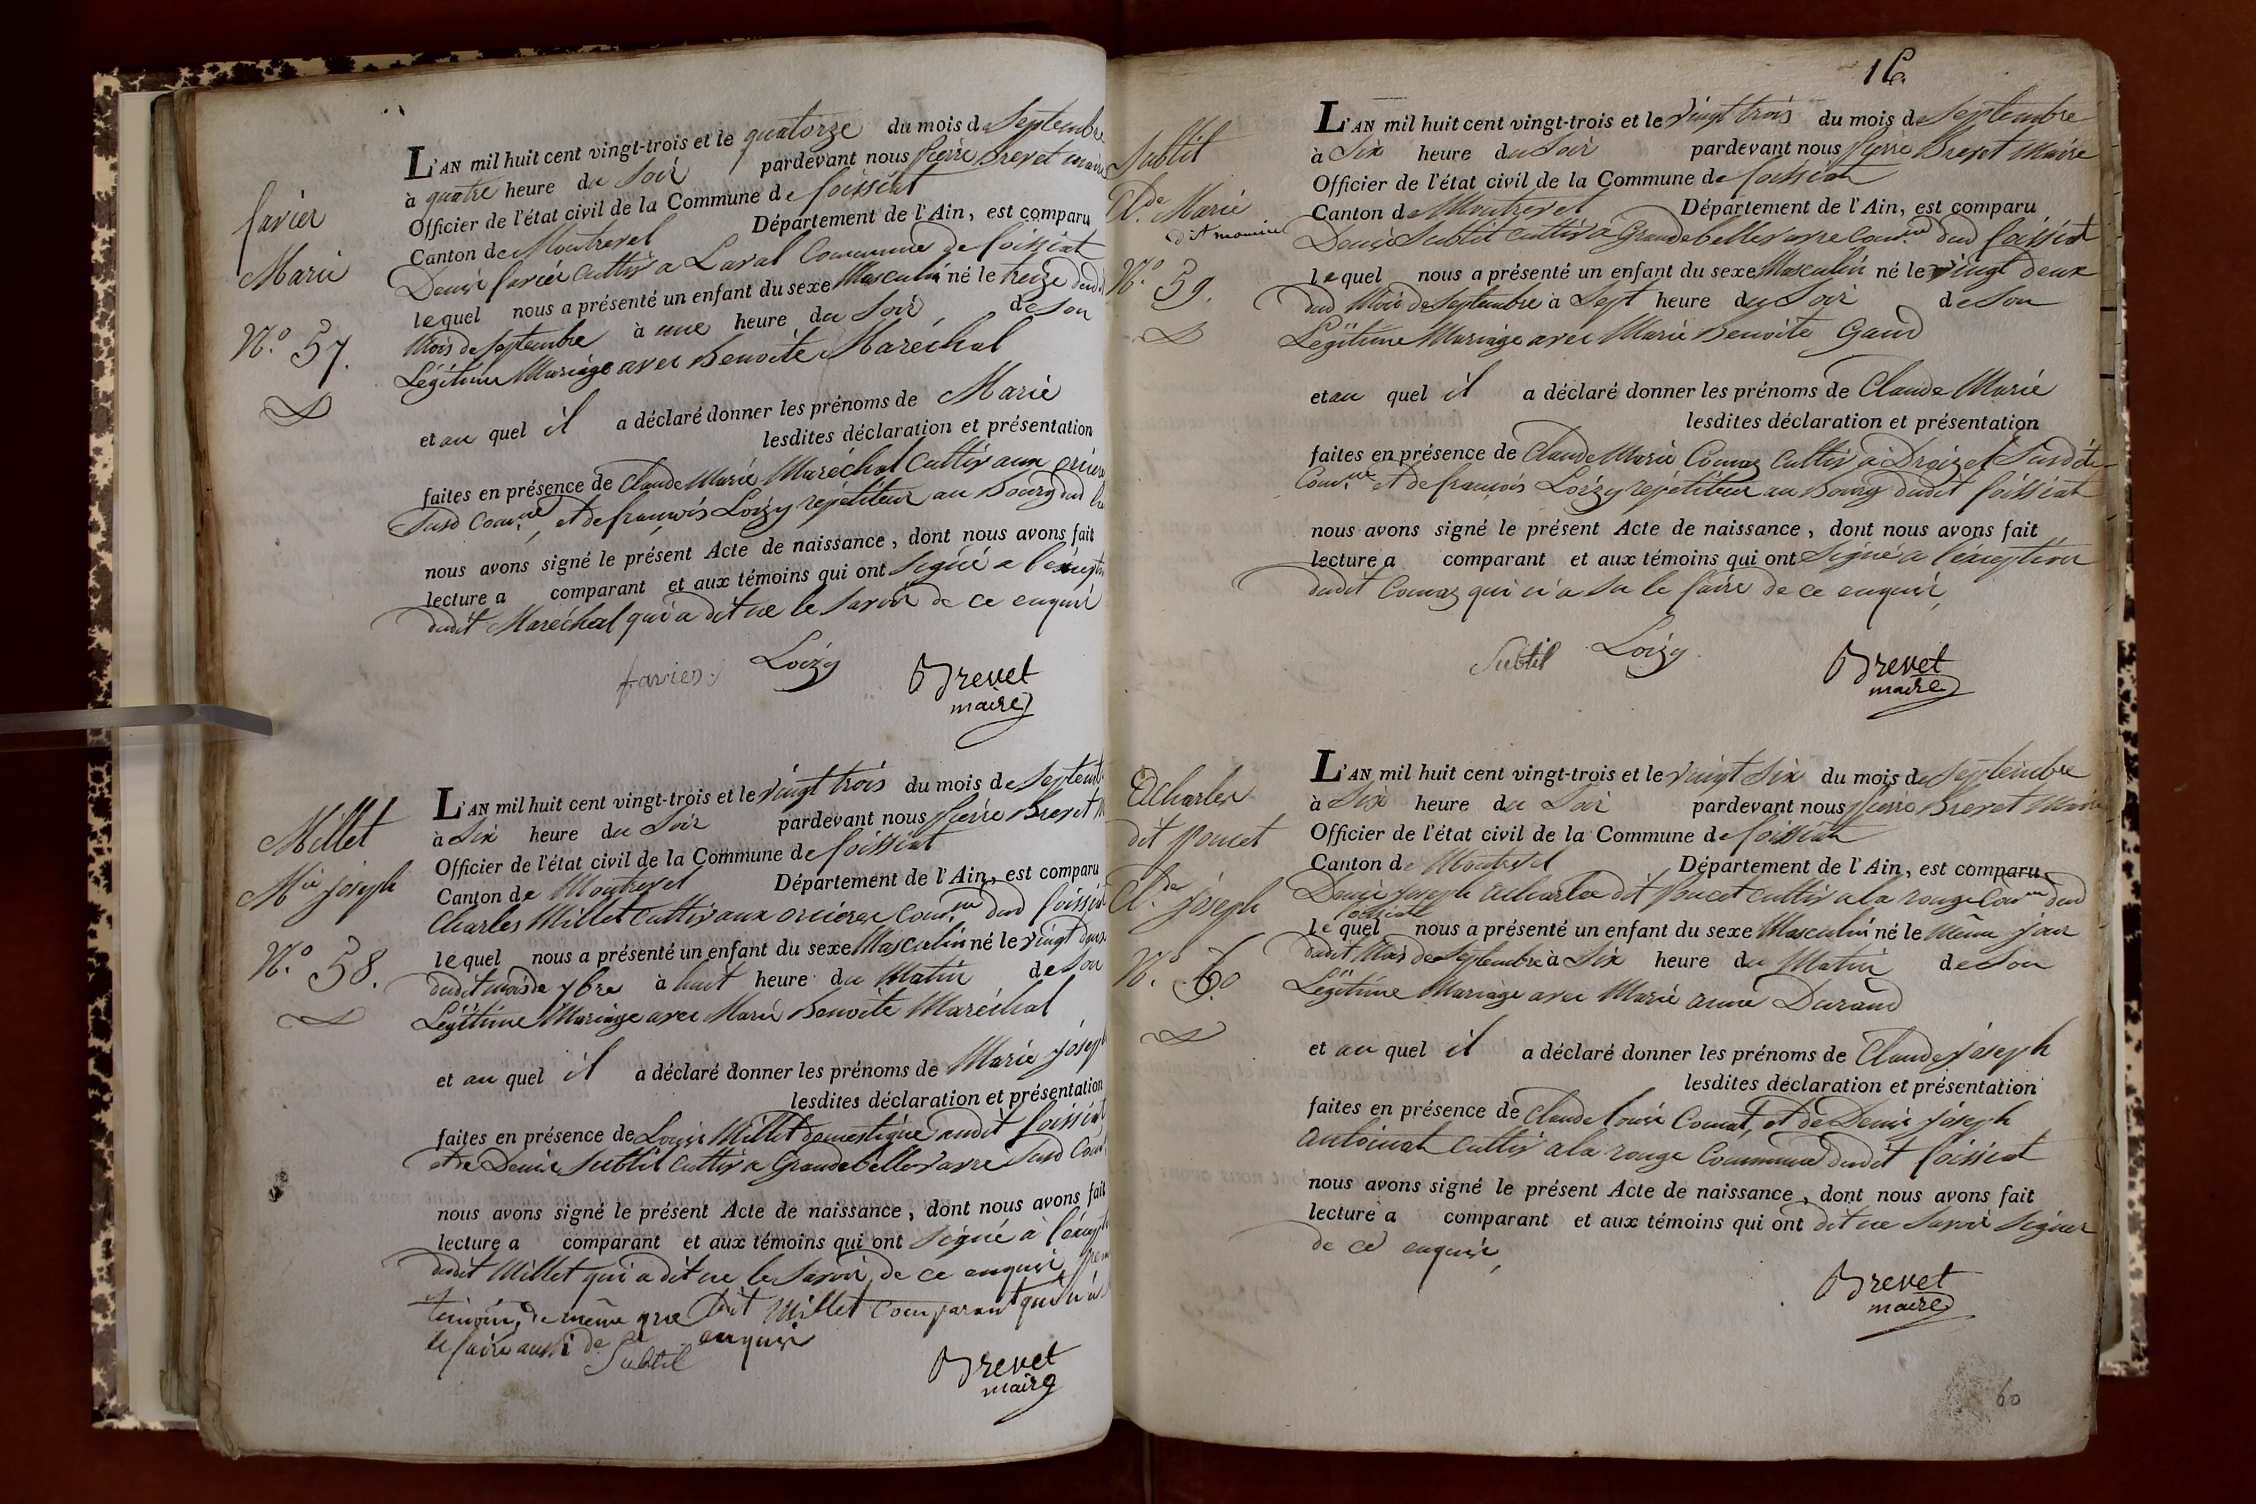 favier
Marie
N.o 57.
L'AN mil huit cent vingt-trois et le quatorze du mois de Septembre
à quatre heure du Soir pardevant nous Pierre Brevet maire
Officier de l'état civil de la Commune de foissiat
Canton de Montrevel Département de l'Ain, est comparu
Denis favier cultiv a Laval Commune de foissiat
lequel nous a présenté un enfant du sexe Masculin né le treize dudit
Mois de Septembre à une heure du Soir de Son
Légitime Mariage avec Benoite Maréchal
et au quel il a déclaré donner les prénoms de Marie
lesdites déclaration et présentation
faites en présence de Claude Marie Maréchal Cultiv aux
Susd Com.ne et de françois Loizy repétiteur au Bourg dud
nous avons signé le présent Acte de naissance, dont nous avons fait
lecture a comparant et aux témoins qui ont Signé a l'éxception
dudit Maréchal qui a dit ne le Savoir de ce enquis
favier Loizy Brevet
maire
Millet
M.ie joseph
N.o 58.
L'AN mil huit cent vingt-trois et le vingt trois du mois de Septembre
à Six heure du Soir pardevant nous Pierre Brevet M
Officier de l'état civil de la Commune de foissiat
Canton de Montrevel Département de l'Ain, est comparu
Charles Millet Cultiv aux orcieres Com.ne dud foissiat
lequel nous a présenté un enfant du sexe Masculin né le vingt deux
dudit mois de 7bre à huit heure du Matin de Son
Légitime Mariage avec Marie Benoite Maréchal
et au quel il a déclaré donner les prénoms de Marie joseph
lesdites déclaration et présentation
faites en présence de Louis Millet domestique audit foissiat
et de Denis Subtil Cultiv a Grandebellevavre Susd Com
nous avons signé le présent Acte de naissance, dont nous avons fait
lecture a comparant et aux témoins qui ont Signé à l'éxcept
dudit Millet qui a dit ne le Savoir de ce enquis
temoin, de même que Dit Millet Comparant qui n'a
le faire aussi de ce enquis
Subtil Brevet
maire
16
Subtil
Cl.de Marie
N.o 59.
L'AN mil huit cent vingt-trois et le vingt trois du mois de Septembre
à Six heure du Soir pardevant nous Pierre Brevet Maire
Officier de l'état civil de la Commune de foissiat
Canton de Montrevel Département de l'Ain, est comparu
Denis Subtil cultiv à Grandebellevavre Com.ne dud foissiat
lequel nous a présenté un enfant du sexe Masculin né le vingt deux
dud Mois de Septembre à Sept heure du Soir de Son
Légitime Mariage avec Marie Benoite Gaud
et au quel il a déclaré donner les prénoms de Claude Marie
lesdites déclaration et présentation
faites en présence de Claude Marie Comaz Cultiv à Droizet Susdite
Com.ne et de françois Loizy repétiteur au Bourg dudit foissiat
nous avons signé le présent Acte de naissance, dont nous avons fait
lecture a comparant et aux témoins qui ont Signé a l'éxception
dudit Comaz qui n'a Su le faire de ce enquis,
Subtil Loizy Brevet
maire
Acharlex
dit poncet
Cl.de joseph
N.o 60
L'AN mil huit cent vingt-trois et le vingt Six du mois de Septembre
à Six heure du Soir pardevant nous Pierre Brevet Maire
Officier de l'état civil de la Commune de foissiat
Canton de Montrevel Département de l'Ain, est comparu
Denis joseph acharlex dit Poncet cultiv a la rouge Com.ne dud
foissiat
lequel nous a présenté un enfant du sexe Masculin né le Même jour
dudit Mois de Septembre à Six heure du Matin de Son
Légitime Mariage avec Marie anne Durand
et au quel il a déclaré donner les prénoms de Claude joseph
lesdites déclaration et présentation
faites en présence de Claude louis Comat, et de Denis joseph
antoinat Cultiv a la rouge Commune dudit foissiat
nous avons signé le présent Acte de naissance, dont nous avons fait
lecture a comparant et aux témoins qui ont dit ne Savoir Signer
de ce enquis,
Brevet
maire
60